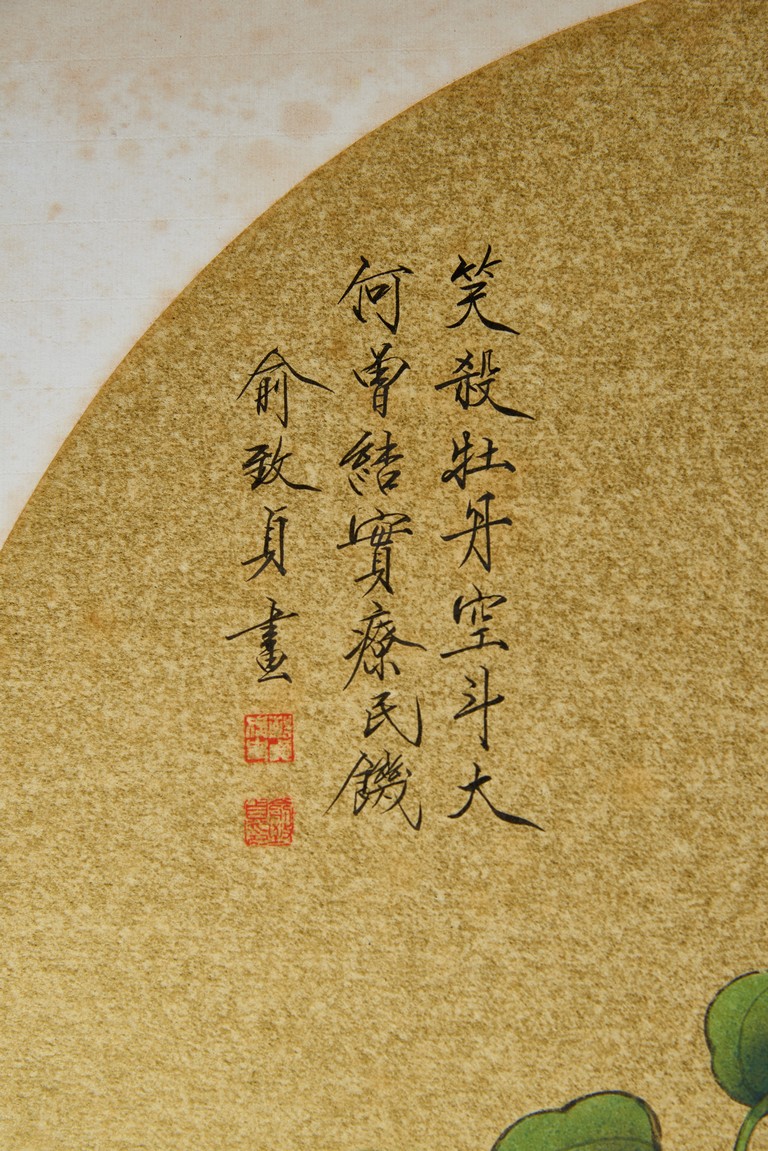 笑殺牡丹空斗大
何曾結實療民饑
俞致貞畫